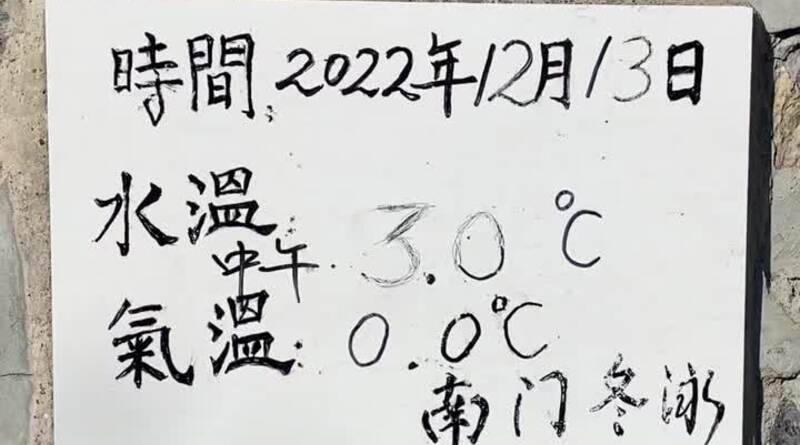 時間:2022年12月13日
水溫:3.0℃
中午
氣溫:0.0℃
南门冬泳